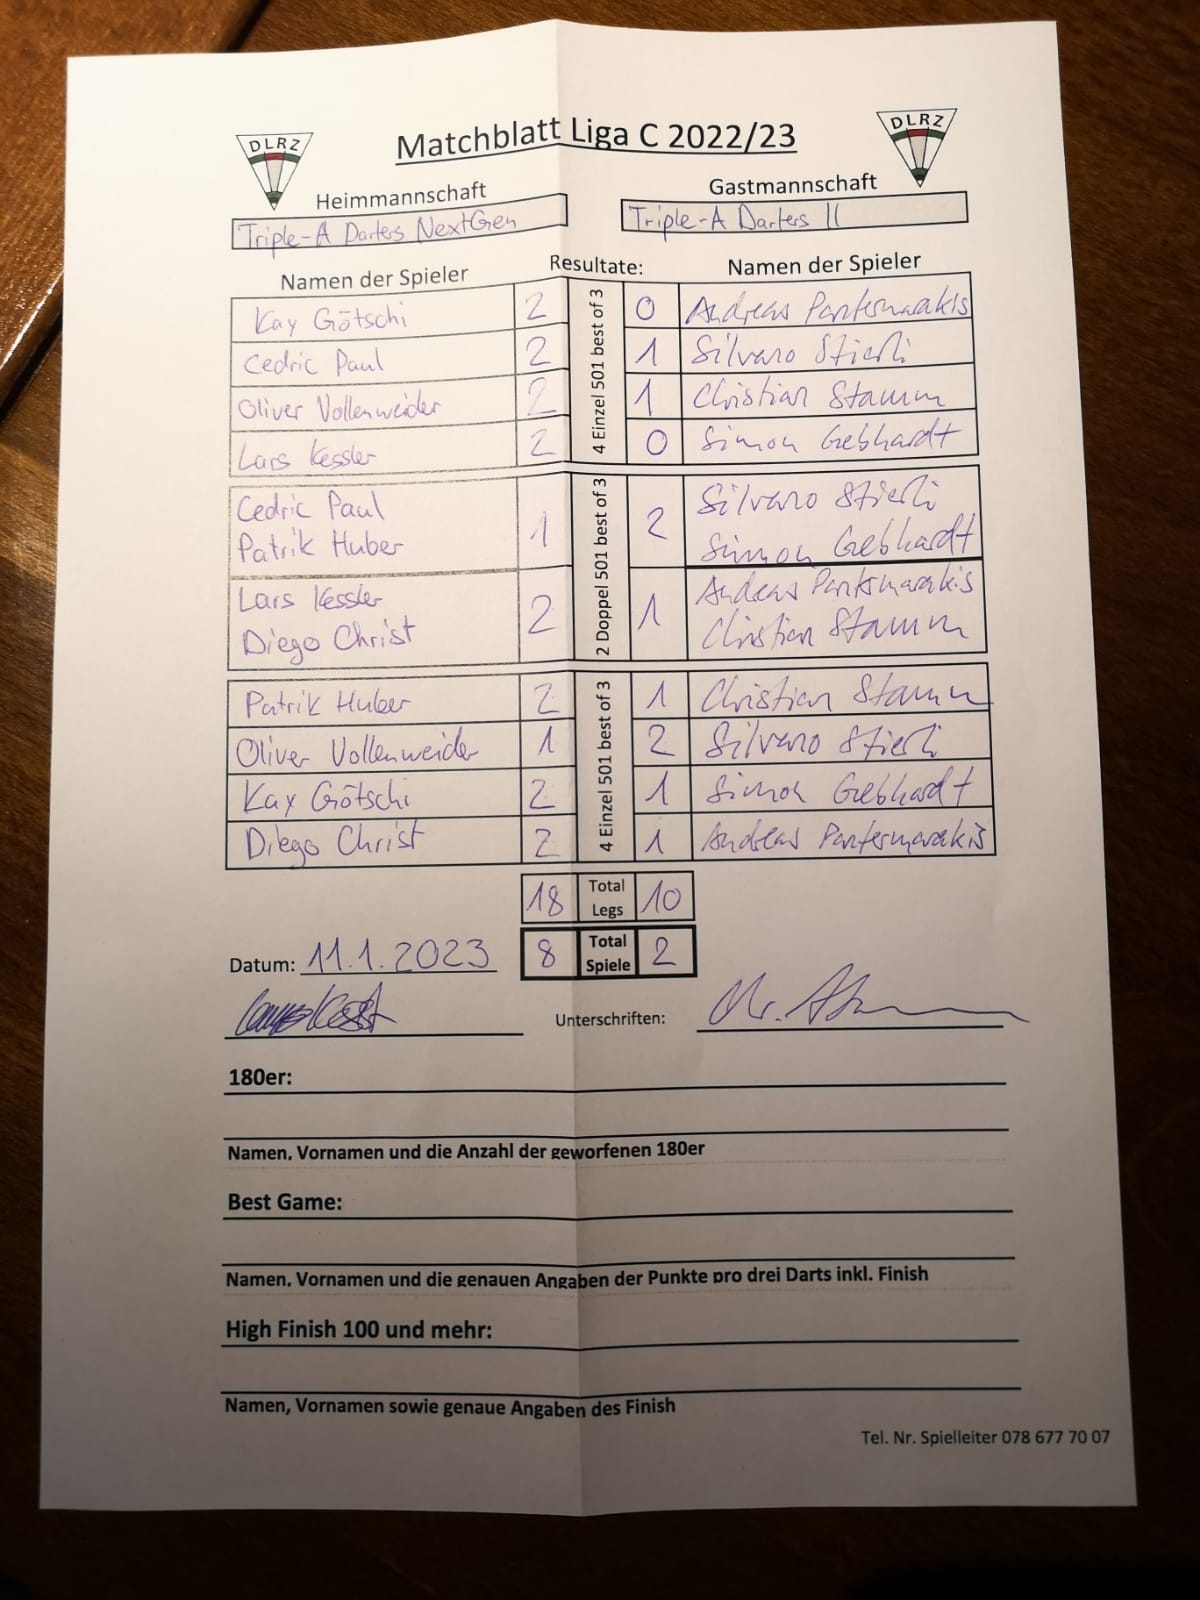 DLRZ
Matchblatt Liga C 2022/23
DLRZ
Heimmannschaft
Gastmannschaft
Triple-A Darters NextGen
Triple-A Darters II
Namen der Spieler
Resultate:
Namen der Spieler
4 Einzel 501 best of 3
Kay Götschi 2 0 Andreas Pantermarakis
Cedric Paul 2 1 Silvano Stierli
Oliver Vollenweider 2 1 Christian Stamm
Lars Kessler 2 0 Simon Gebhardt
2 Doppel 501 best of 3
Cedric Paul
Patrik Huber
1 2
Silvano Stierli
Simon Gebhardt
Lars Kessler
Diego Christ
2 1
Andreas Pantermarakis
Christian Stamm
4 Einzel 501 best of 3
Patrik Huber 2 1 Christian Stamm
Oliver Vollenweider 1 2 Silvano Stierli
Kay Götschi 2 1 Simon Gebhardt
Diego Christ 2 1 Andreas Pantermarakis
18 Total Legs 10
8 Total Spiele 2
Datum: 11.1.2023
Unterschriften:
180er:
Namen, Vornamen und die Anzahl der geworfenen 180er
Best Game:
Namen, Vornamen und die genauen Angaben der Punkte pro drei Darts inkl. Finish
High Finish 100 und mehr:
Namen, Vornamen sowie genaue Angaben des Finish
Tel. Nr. Spielleiter 078 677 70 07